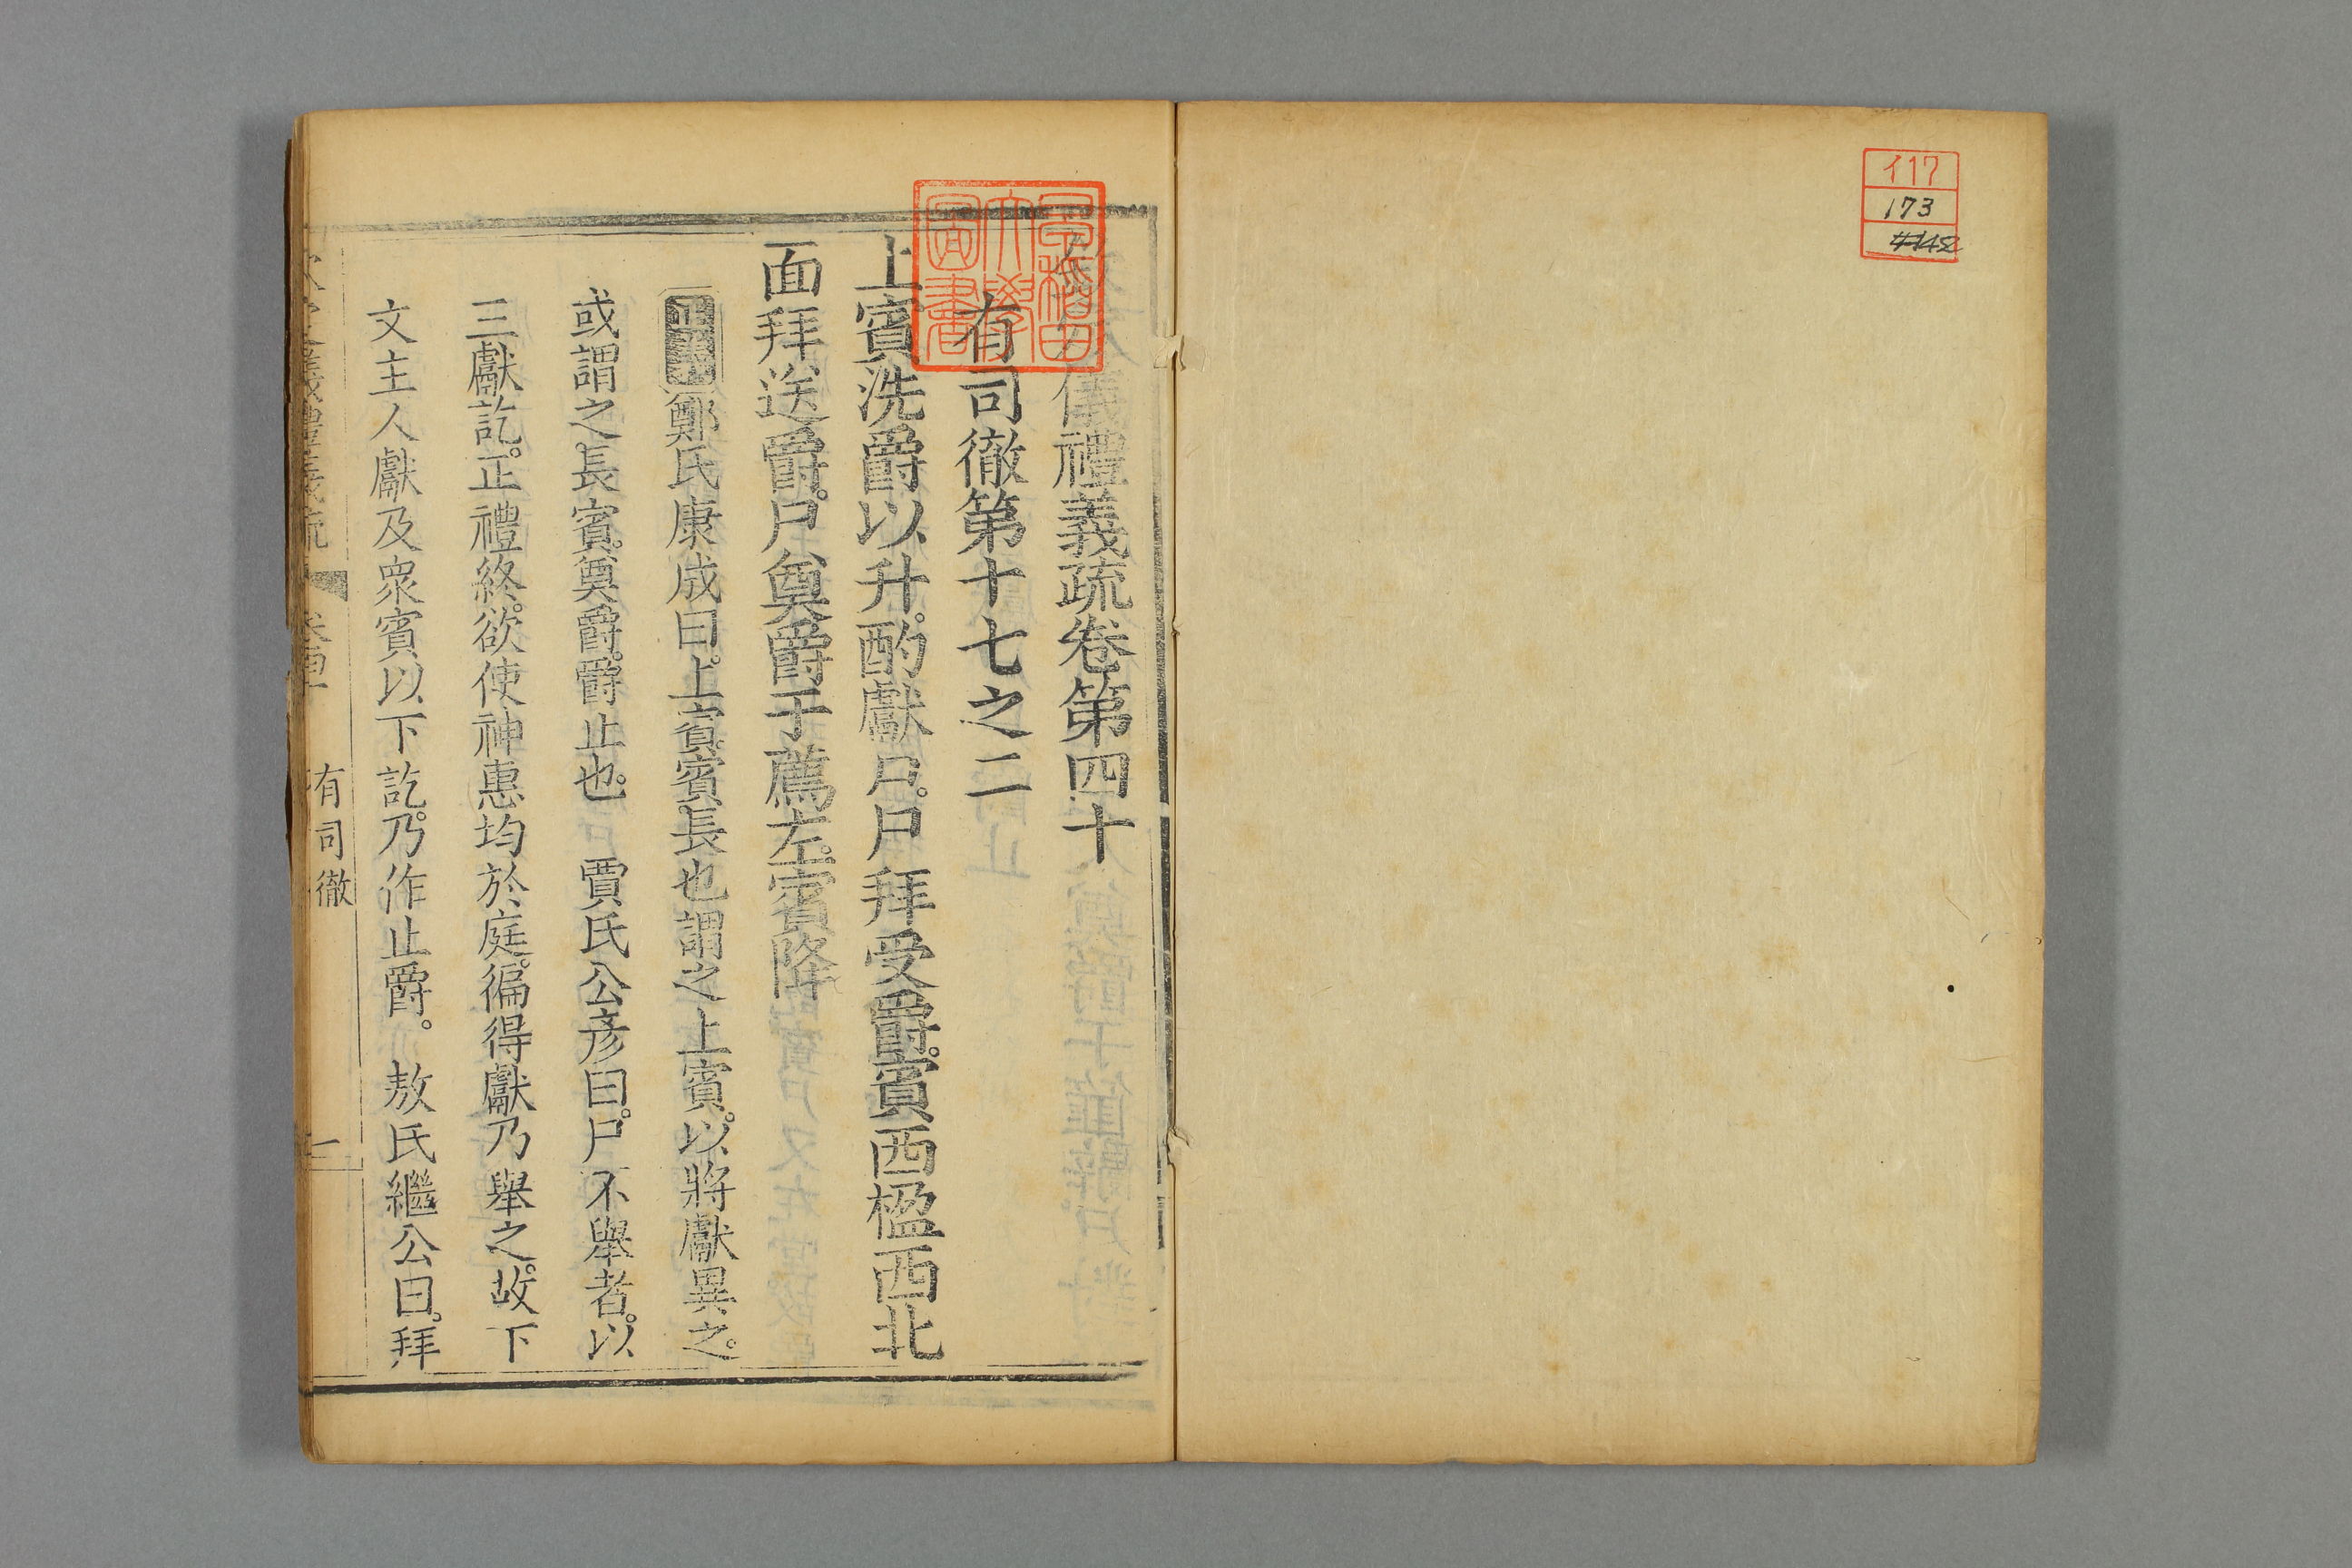 イ17
173
儀禮義疏卷第四十
早稲田大學圖書
有司徹第十七之二
上賓洗爵以升。酌獻尸。尸拜受爵。賓西楹西北
面拜送爵。尸奠爵于薦左。賓降
正義鄭氏康成曰。上賓。賓長也。謂之上賓。以將獻異之。
或謂之長賓。奠爵。爵止也。 賈氏公彥曰。尸不舉者。以
三獻訖。正禮終。欲使神惠均於庭。徧得獻乃舉之。故下
文主人獻及衆賓以下訖。乃作止爵。 敖氏繼公曰。拜
儀禮義疏 卷四十 有司徹 一